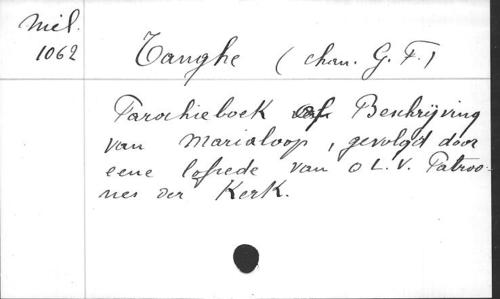 Mél.
1062
Tanghe (chan. G. F.)
Parochieboek of Beschrijving
van Marialoop, gevolgd door
eene lofrede van O L. V. Patroo-
nes der Kerk.